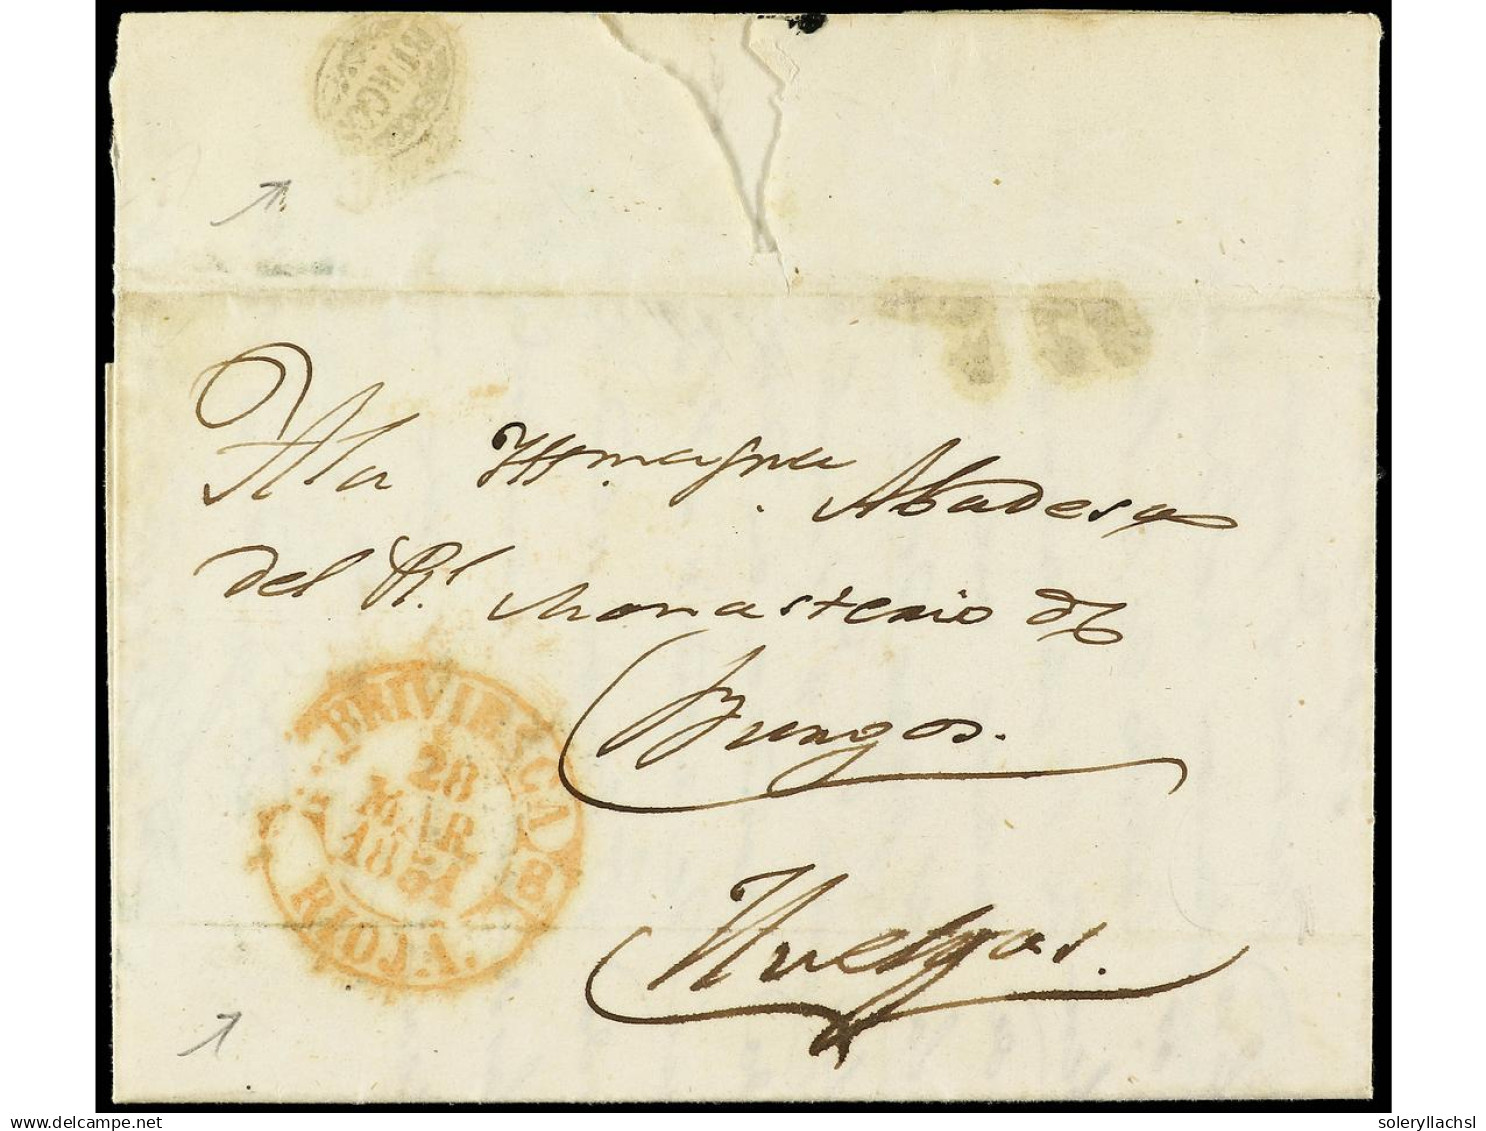 BURGOS
A la Yll.ma Sra Abadesa
del Rl. Monasterio de
Burgos.
Huelgas.
BRIVIESCA 8
28
MAR
1851
RIOJA.
delcampe.net
soleryllachsl